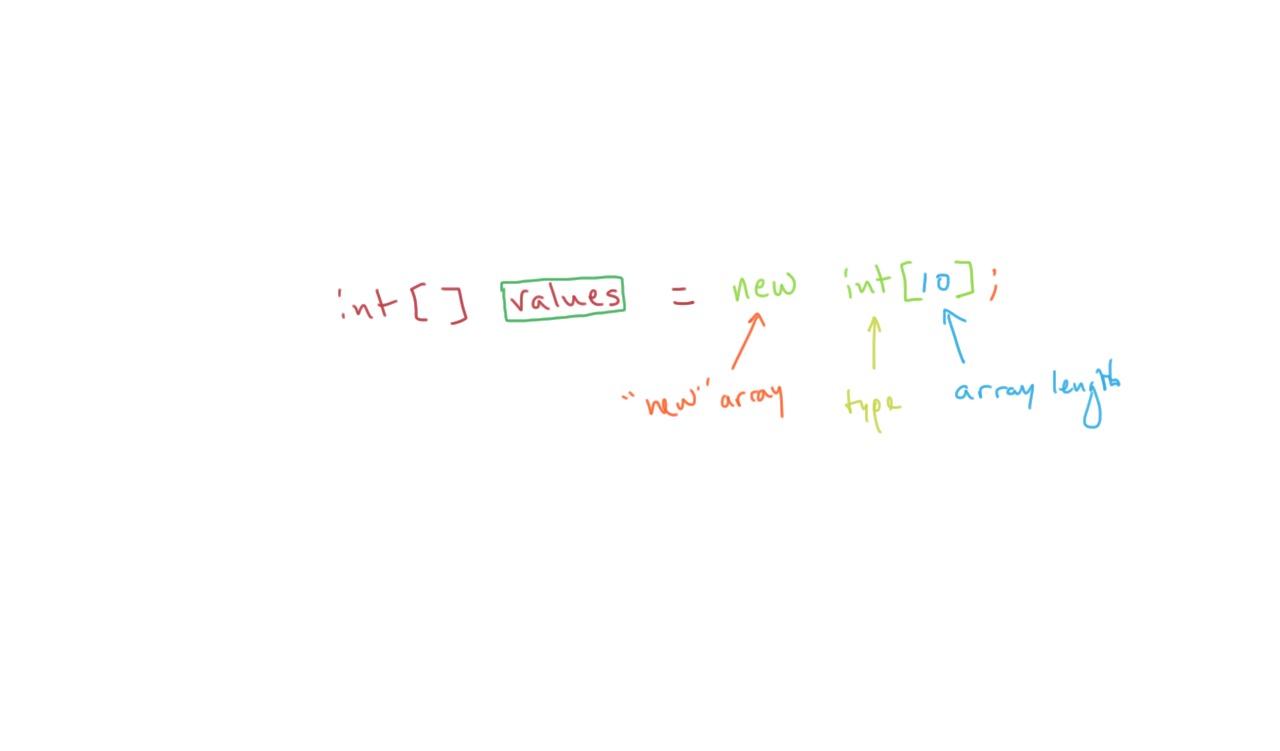 int[] values = new int[10];
"new" array type array length